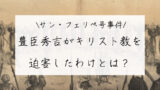 \サン・フェリペ号事件/
豊臣秀吉がキリスト教を
迫害したわけとは？